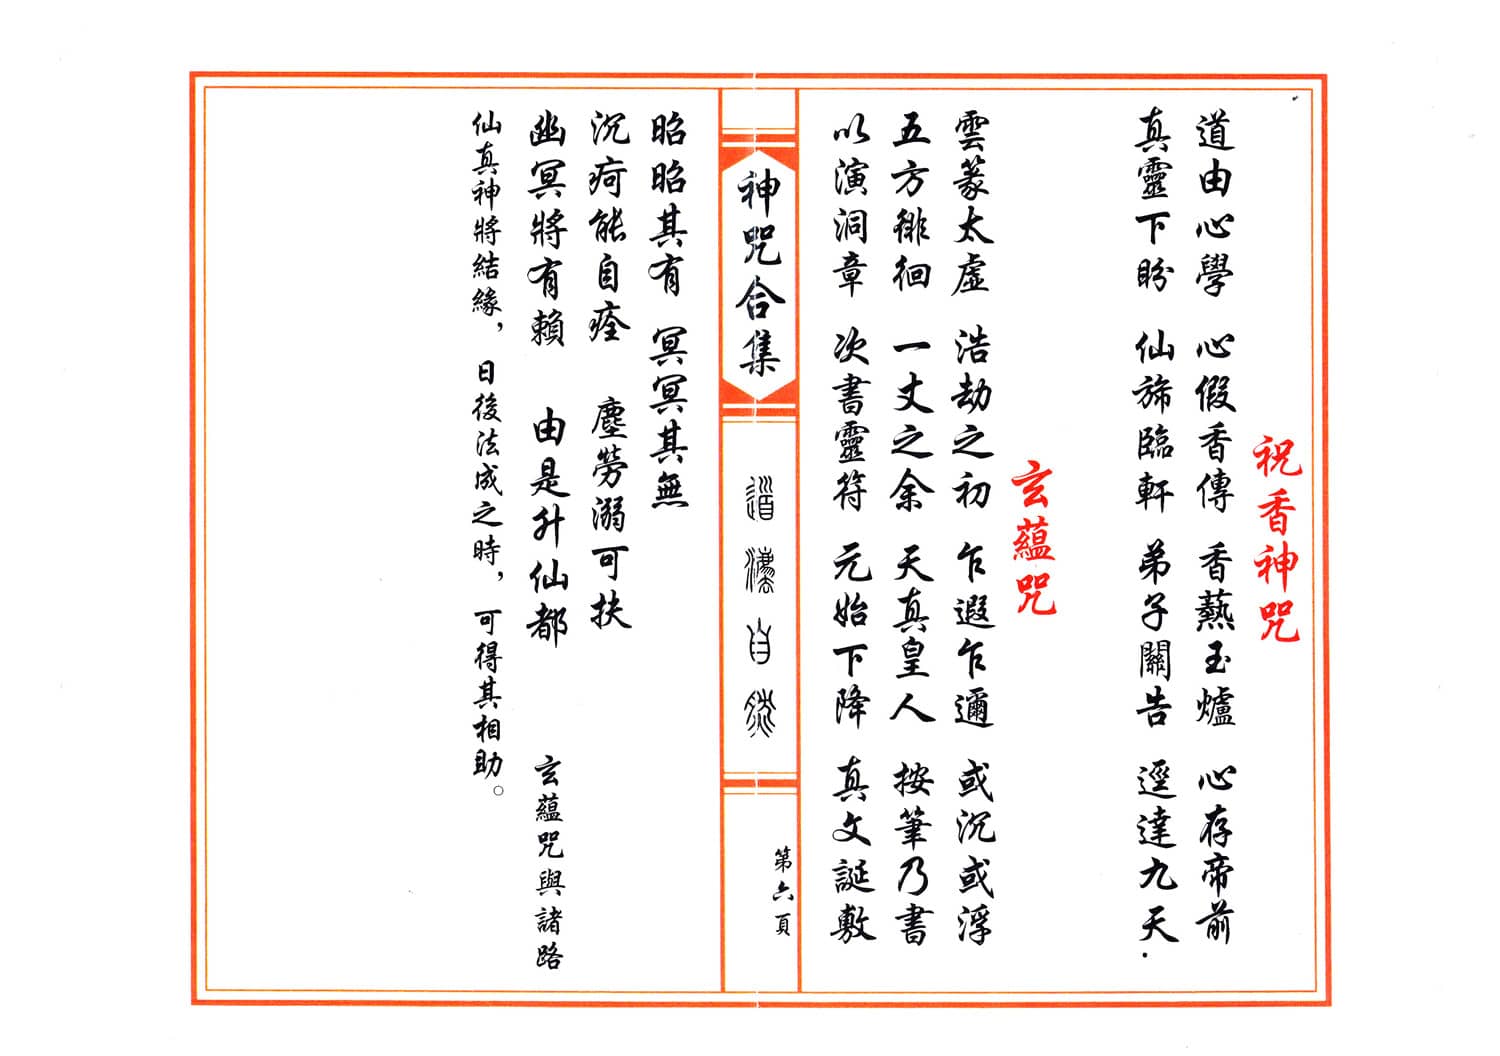 祝香神咒
道由心學 心假香傳 香爇玉爐 心存帝前
真靈下盼 仙旆臨軒 弟子關告 逕達九天.
玄蘊咒
雲篆太虛 浩劫之初 乍遐乍邇 或沉或浮
五方徘徊 一丈之余 天真皇人 按筆乃書
以演洞章 次書靈符 元始下降 真文誕敷
神咒合集
道法自然
第六頁
昭昭其有 冥冥其無
沉疴能自痊 塵勞溺可扶
幽冥將有賴 由是升仙都 玄蘊咒與諸路
仙真神將結緣，日後法成之時，可得其相助。